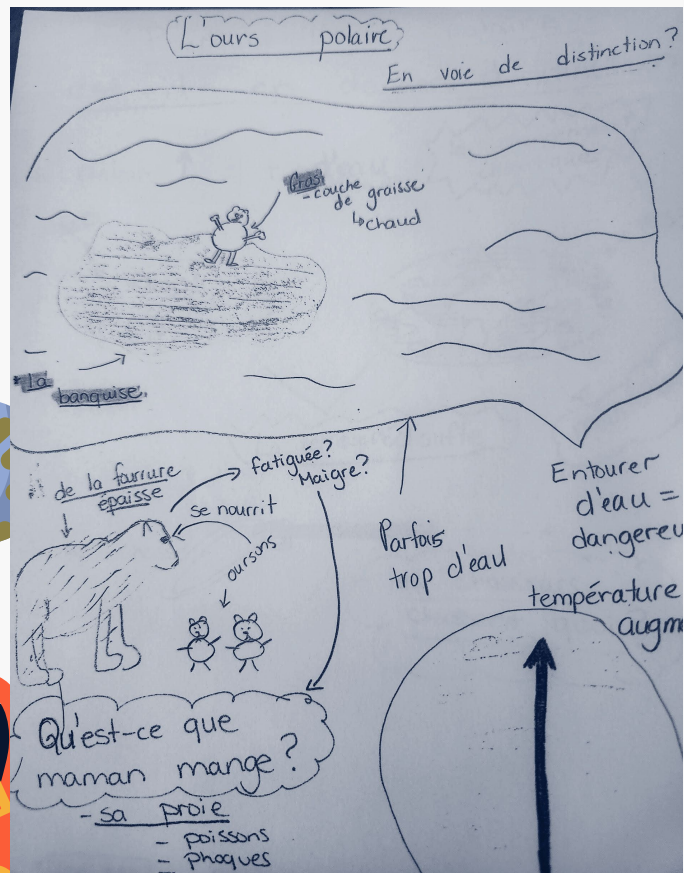 L'ours polaire
En voie de distinction?
Gras
-couche
de graisse
↳chaud
la
banquise.
de la fourrure
épaisse
fatiguée?
Maigre?
se nourrit
oursons
Parfois
trop d'eau
Entourer
d'eau =
dangereu
température
augm
Qu'est-ce que
maman mange?
- sa proie
- poissons
- phoques